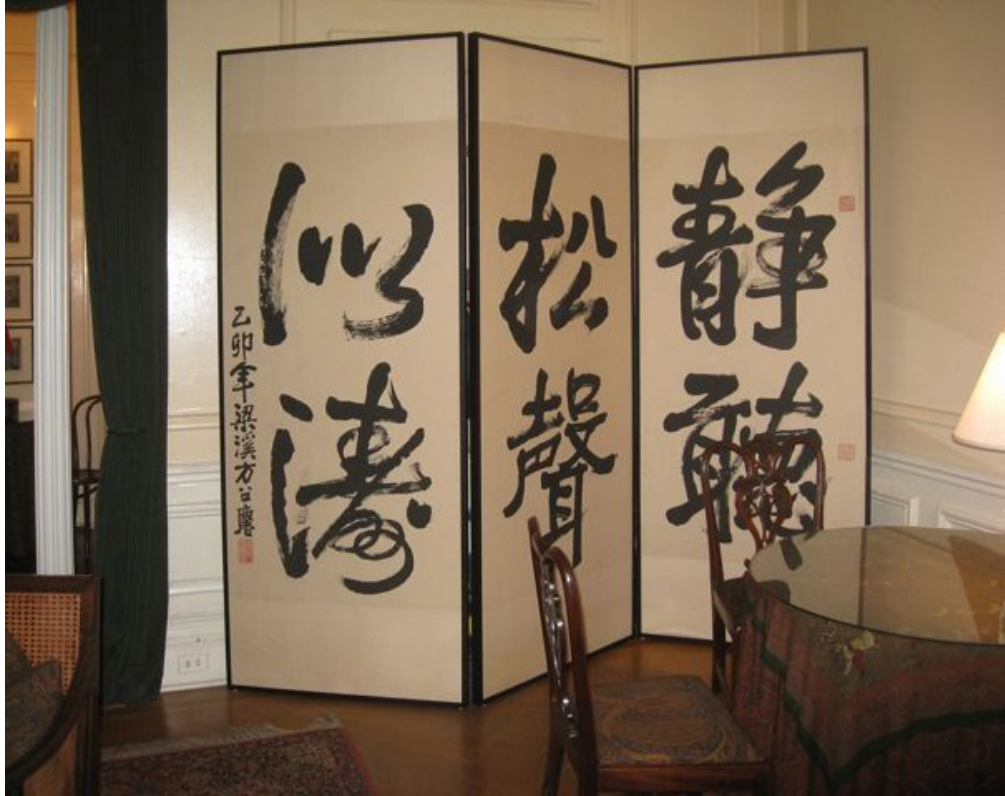 静聽
松聲
似濤
乙卯年梁溪方召麐